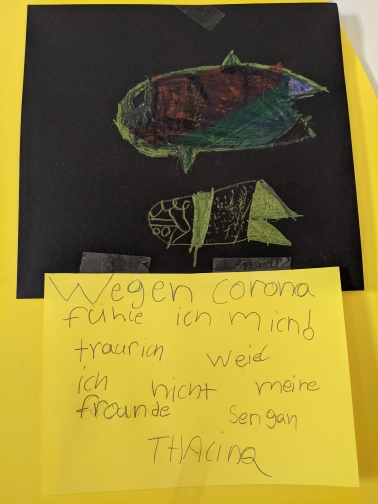 Wegen corona
fühle ich mich
traurich weil
ich nicht meine
freunde sengan
THAlina